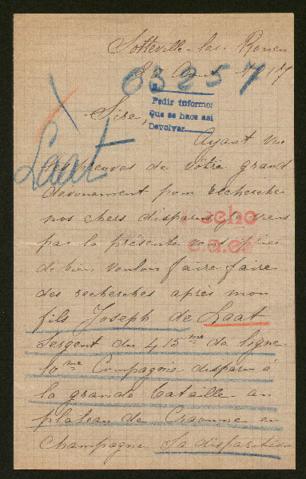 Sotteville-les-Rouen
63257
Pedir informes
que se hace asi
Devolver
Sire,
Laat
Ayant vu
preuves de Vôtre grand
dévouement pour rechercher
nos chers disparus je viens
par la présente vous prier
de bien vouloir faire faire
des recherches après mon
fils Joseph de Laat
Sergent du 415me de ligne
10me Compagnie disparu à
la grande bataille au
plateau de Craonne en
Champagne Sa disparition